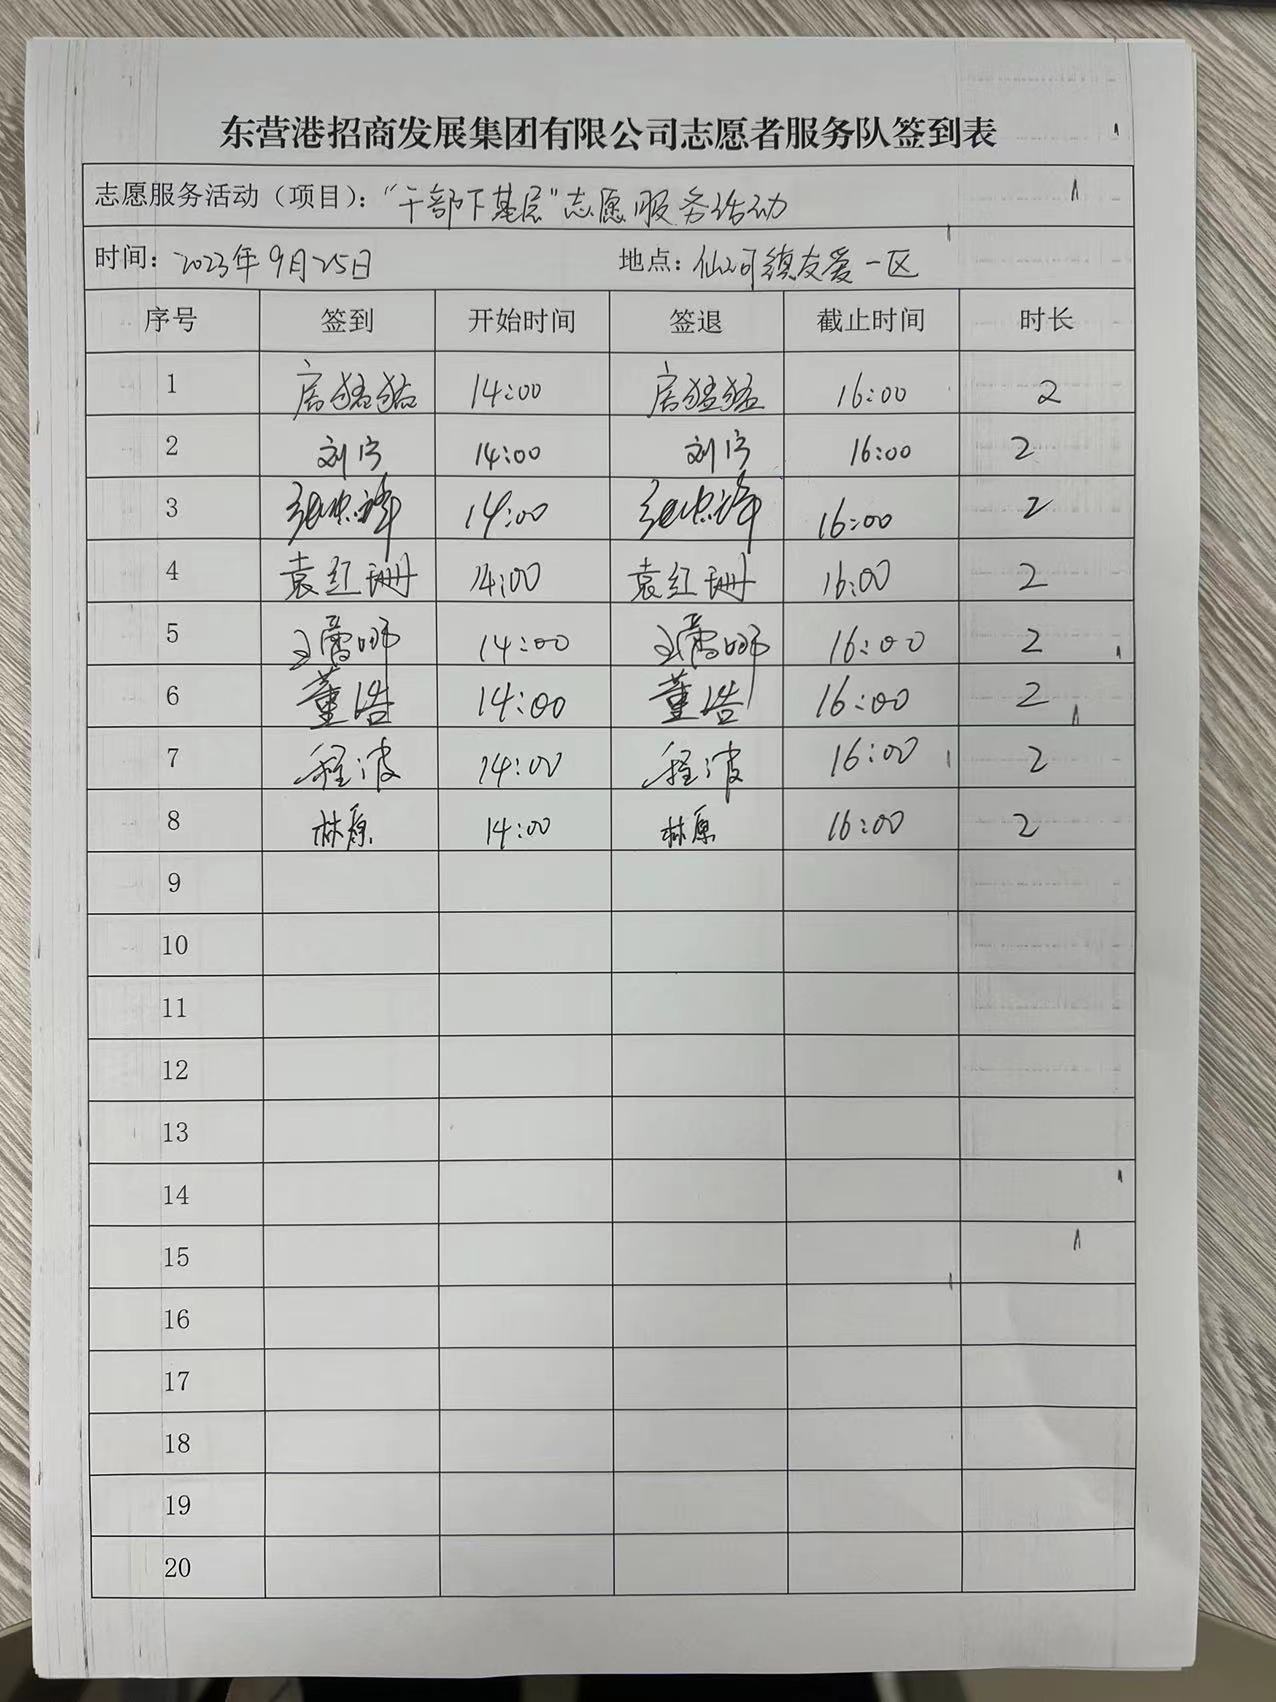 东营港招商发展集团有限公司志愿者服务队签到表
志愿服务活动（项目）：“干部下基层”志愿服务活动
时间：2023年9月25日 地点：仙河镇友爱一区
序号 签到 开始时间 签退 截止时间 时长
1 14:00 16:00 2
2 刘宁 14:00 刘宁 16:00 2
3 14:00 16:00 2
4 袁红珊 14:00 袁红珊 16:00 2
5 14:00 16:00 2
6 董浩 14:00 董浩 16:00 2
7 程波 14:00 程波 16:00 2
8 林原 14:00 林原 16:00 2
9
10
11
12
13
14
15
16
17
18
19
20